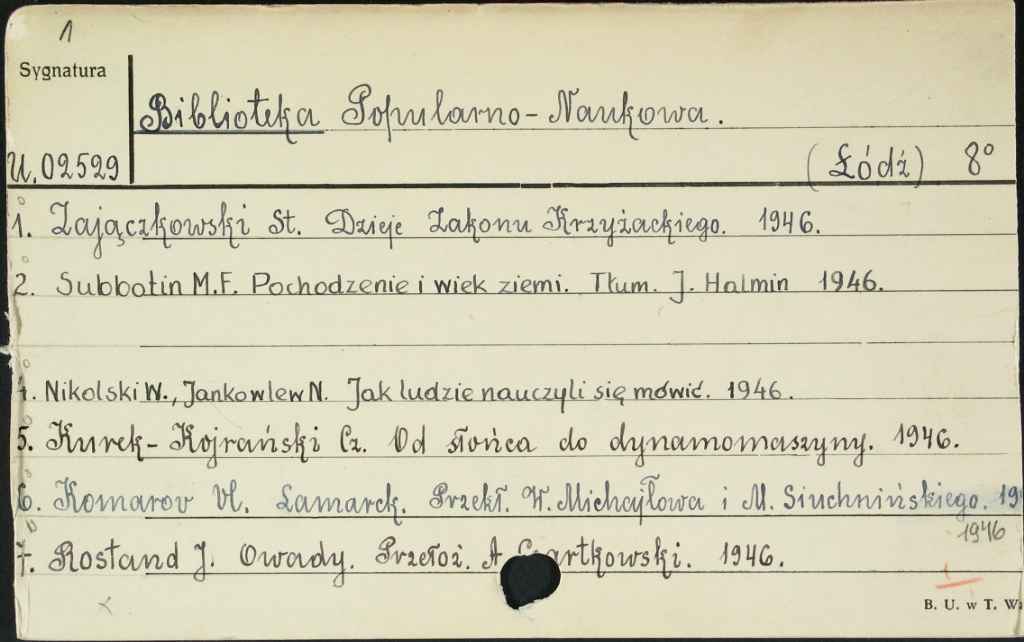 1
Sygnatura
Biblioteka Popularno-Naukowa.
U.02529
(Łódź) 8°
1. Zajączkowski St. Dzieje Zakonu Krzyżackiego. 1946.
2. Subbotin M.F. Pochodzenie i wiek ziemi. Tłum. J. Halmin 1946.
4. Nikolski W., Jankowlew N. Jak ludzie nauczyli się mówić. 1946.
5. Kurek-Kojrański Cz. Od słońca do dynamomaszyny. 1946.
6. Komarov Vl. Lamarck. Przekł. W. Michajłowa i M. Siuchnińskiego. 19
1946
7. Rostand J. Owady. Przełoż. A 1946.
B. U. w T. W